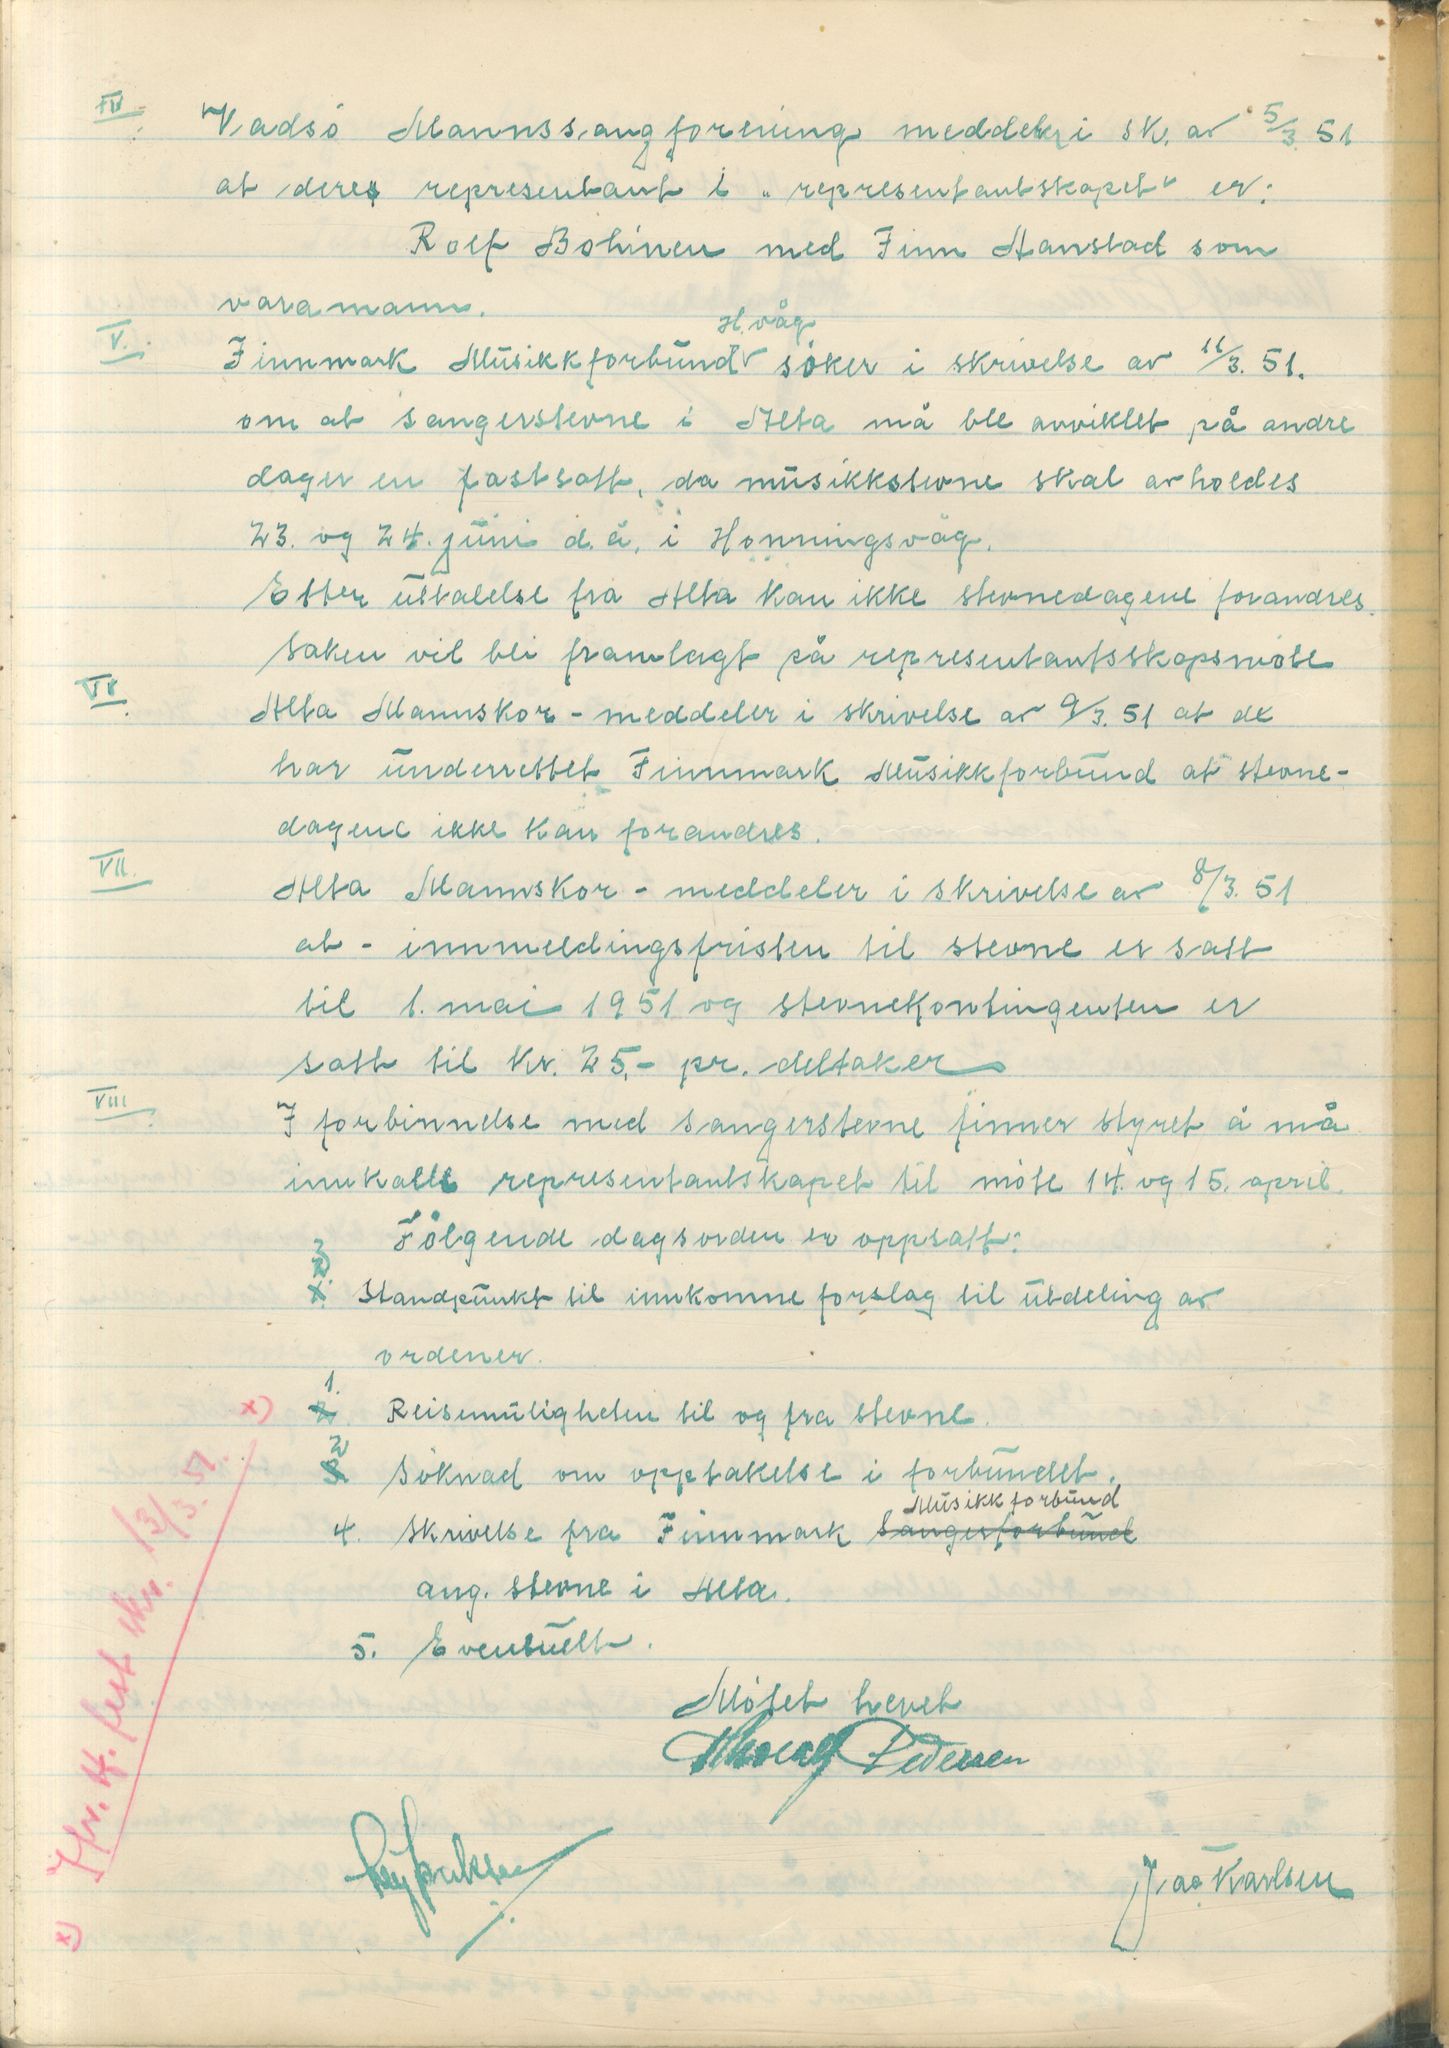 IV. Vadsö Mannssangforening meddeler i sk. av 5/3. 51
at deres representant i "representantskapet" er:
Rolf Bohinen med Finn Hanstad som
varamann.
H.våg
V. Finnmark Musikkforbund søker i skrivelse av 11/3. 51.
om at sangerstevne i Alta må ble avviklet på andre
dager en fastsatt, da musikkstevne skal avholdes
23. og 24. juni d.å. i Honningsvåg.
Etter uttalelse fra Alta kan ikke stevnedagene forandres.
Saken vil bli framlagt på representantsskapsmøte
VI. Alta Mannskor - meddeler i skrivelse av 9/3. 51 at de
har underrettet Finnmark Musikkforbund at stevne-
dagene ikke kan forandres.
VII. Alta Mannskor - meddeler i skrivelse av 8/3. 51
at - innmeldingsfristen til stevne er satt
til 1. mai 1951 og stevnekontingenten er
satt til kr. 25,- pr. deltaker
VIII. I forbinnelse med sangerstevne finner styret å må
innkalle representantskapet til møte 14. og 15. april.
Følgende dagsorden er oppsatt:
3 Standpunkt til innkomne forslag til utdeling av
ordener.
x) 1. Reisemuligheten til og fra stevne.
2 Søknad om opptakelse i forbundet.
Musikkforbund
4. Skrivelse fra Finnmark Sangerforbund
ang. stevne i Alta.
5. Eventuelt.
Møtet hevet
Pedersen
Karlsen
x) Jfr. H.fest skr. 13/3. 51.